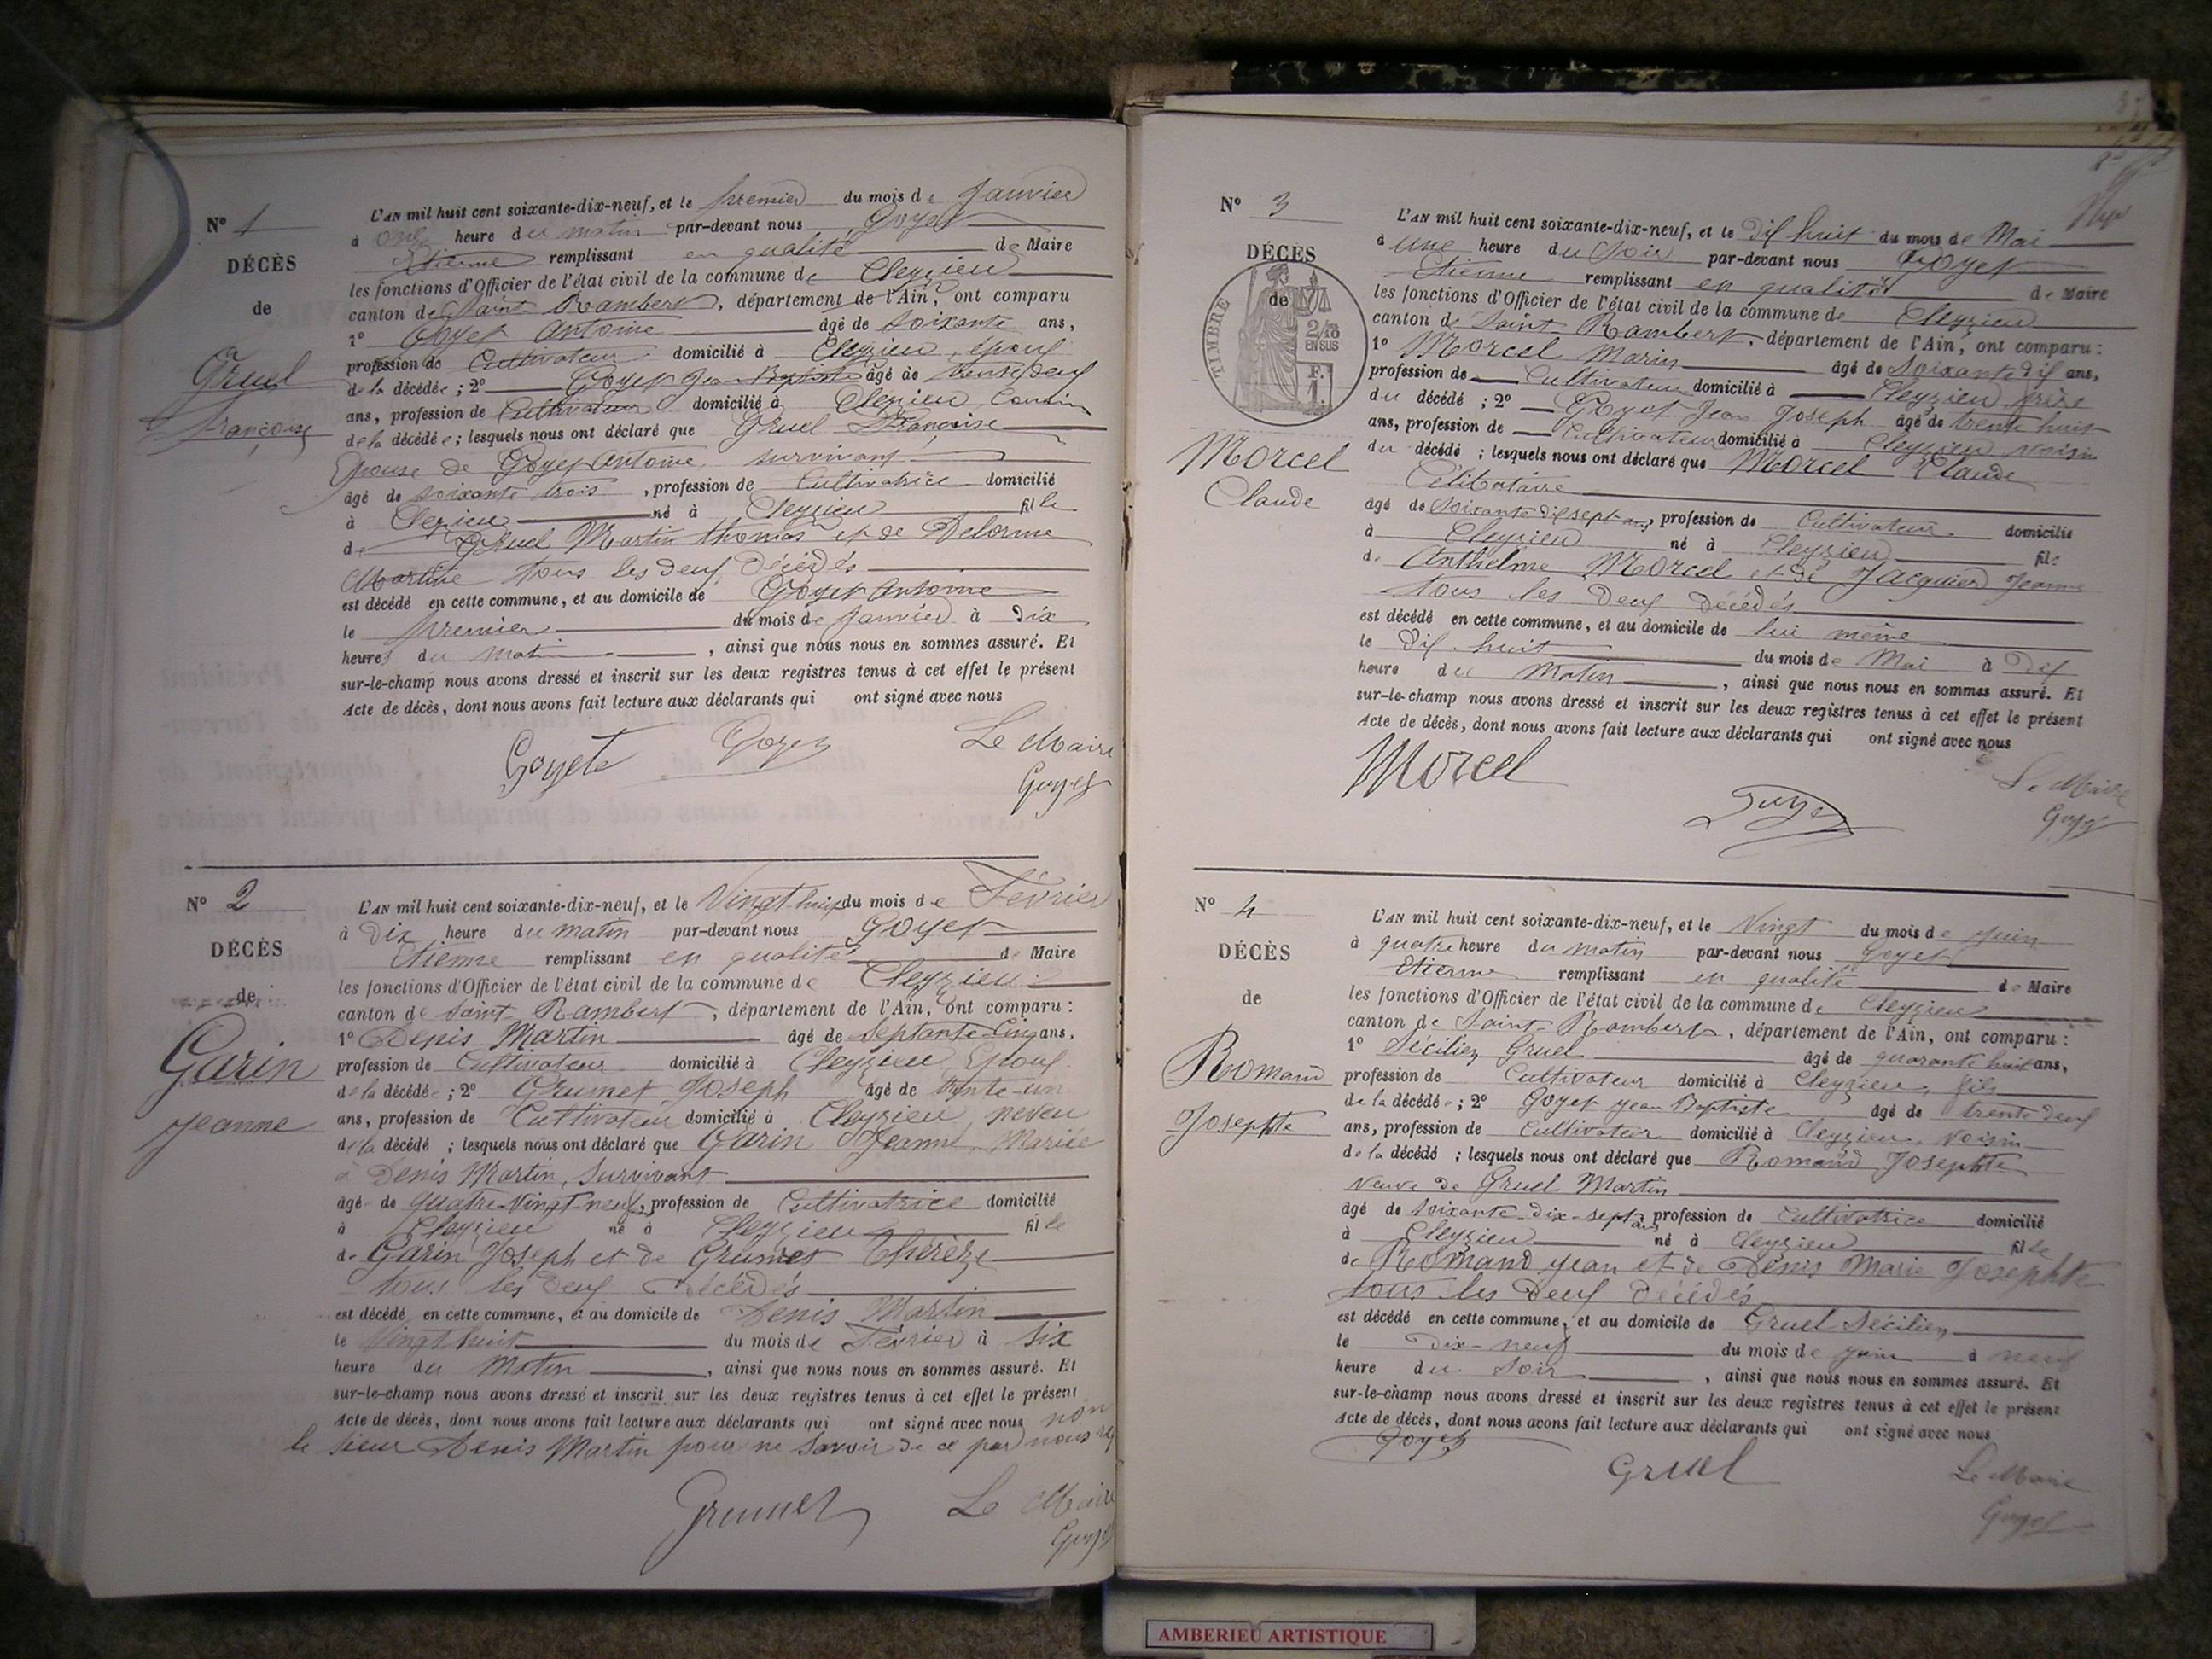 N° 1
DÉCÈS
de
Gruel
Françoise
L'AN mil huit cent soixante-dix-neuf, et le premier du mois de Janvier
à onze heure du matin par-devant nous Goyet
Etienne remplissant en qualité de Maire
les fonctions d'Officier de l'état civil de la commune de Cleyzieu
canton de Saint Rambert, département de l'Ain, ont comparu
1° Goyet Antoine âgé de soixante ans,
profession de Cultivateur domicilié à Cleyzieu, époux
de la décédée ; 2° Goyet Jean Baptiste âgé de trente deux
ans, profession de Cultivateur domicilié à Cleyzieu, Cousin
de la décédée ; lesquels nous ont déclaré que Gruel Françoise
Epouse de Goyet Antoine survivant
âgé de soixante trois, profession de Cultivatrice domicilié
à Cleyzieu né à Cleyzieu fille
de Gruel Martin thomas et de Delorme
Martine tous les deux décédés
est décédé en cette commune, et au domicile de Goyet Antoine
le premier du mois de Janvier à Dix
heures du matin, ainsi que nous nous en sommes assuré. Et
sur-le-champ nous avons dressé et inscrit sur les deux registres tenus à cet effet le présent
Acte de décès, dont nous avons fait lecture aux déclarants qui ont signé avec nous
Goyet Goyet Le Maire
Goyet
N° 2
DÉCÈS
de
Garin
Jeanne
L'AN mil huit cent soixante-dix-neuf, et le Vingt huit du mois de Février
à Dix heure du matin par-devant nous Goyet
Etienne remplissant en qualité de Maire
les fonctions d'Officier de l'état civil de la commune de Cleyzieu
canton de Saint Rambert, département de l'Ain, ont comparu :
1° Denis Martin âgé de Septante-Cinq ans,
profession de Cultivateur domicilié à Cleyzieu Epoux
de la décédée ; 2° Grumet Joseph âgé de trente-un
ans, profession de Cultivateur domicilié à Cleyzieu, neveu
de la décédé ; lesquels nous ont déclaré que Garin Jeanne, Mariée
à Denis Martin, Survivant
âgé de quatre-Vingt-neuf, profession de Cultivatrice domicilié
à Cleyzieu né à Cleyzieu fille
de Garin Joseph et de Grumet Thérèze
tous les deux décédés
est décédé en cette commune, et au domicile de Denis Martin
le Vingt huit du mois de Février à six
heure du Matin, ainsi que nous nous en sommes assuré. Et
sur-le-champ nous avons dressé et inscrit sur les deux registres tenus à cet effet le présent
Acte de décès, dont nous avons fait lecture aux déclarants qui ont signé avec nous non
le sieur Denis Martin pour ne savoir de ce par nous
Grumet Le Maire
Goyet
N° 3
DÉCÈS
de
TIMBRE
2/10
EN SUS
1 F.
Morcel
Claude
L'AN mil huit cent soixante-dix-neuf, et le Dix huit du mois de Mai
à une heure du Soir par-devant nous Goyet
Etienne remplissant en qualité de Maire
les fonctions d'Officier de l'état civil de la commune de Cleyzieu
canton de Saint Rambert, département de l'Ain, ont comparu :
1° Morcel Marin âgé de Soixante dix ans,
profession de Cultivateur domicilié à Cleyzieu frère
du décédé ; 2° Goyet Jean Joseph âgé de trente huit
ans, profession de Cultivateur domicilié à Cleyzieu voisin
du décédé ; lesquels nous ont déclaré que Morcel Claude
Célibataire
âgé de Soixante dix sept ans, profession de Cultivateur domicilié
à Cleyzieu né à Cleyzieu fils
de Anthelme Morcel et de Jacquier Jeanne
tous les Deux décédés
est décédé en cette commune, et au domicile de lui même
le Dix huit du mois de Mai à Dix
heure du Matin, ainsi que nous nous en sommes assuré. Et
sur-le-champ nous avons dressé et inscrit sur les deux registres tenus à cet effet le présent
Acte de décès, dont nous avons fait lecture aux déclarants qui ont signé avec nous
Morcel Goyet Le Maire
Goyet
N° 4
DÉCÈS
de
Romand
Josephte
L'AN mil huit cent soixante-dix-neuf, et le Vingt du mois de Juin
à quatre heure du matin par-devant nous Goyet
Etienne remplissant en qualité de Maire
les fonctions d'Officier de l'état civil de la commune de Cleyzieu
canton de Saint-Rambert, département de l'Ain, ont comparu :
1° Sécilien Gruel âgé de quarante huit ans,
profession de Cultivateur domicilié à Cleyzieu, fils
de la décédée ; 2° Goyet Jean Baptiste âgé de trente deux
ans, profession de Cultivateur domicilié à Cleyzieu, Voisin
de la décédé ; lesquels nous ont déclaré que Romand Josephte
Veuve de Gruel Martin
âgé de soixante-dix-sept ans, profession de Cultivatrice domicilié
à Cleyzieu né à Cleyzieu fille
de Romand Jean et de Denis Marie Josephte
tous les Deux décédés
est décédé en cette commune, et au domicile de Gruel Sécilien
le Dix-neuf du mois de Juin à neuf
heure du Soir, ainsi que nous nous en sommes assuré. Et
sur-le-champ nous avons dressé et inscrit sur les deux registres tenus à cet effet le présent
Acte de décès, dont nous avons fait lecture aux déclarants qui ont signé avec nous
Goyet Gruel Le Maire
Goyet
AMBERIEU ARTISTIQUE